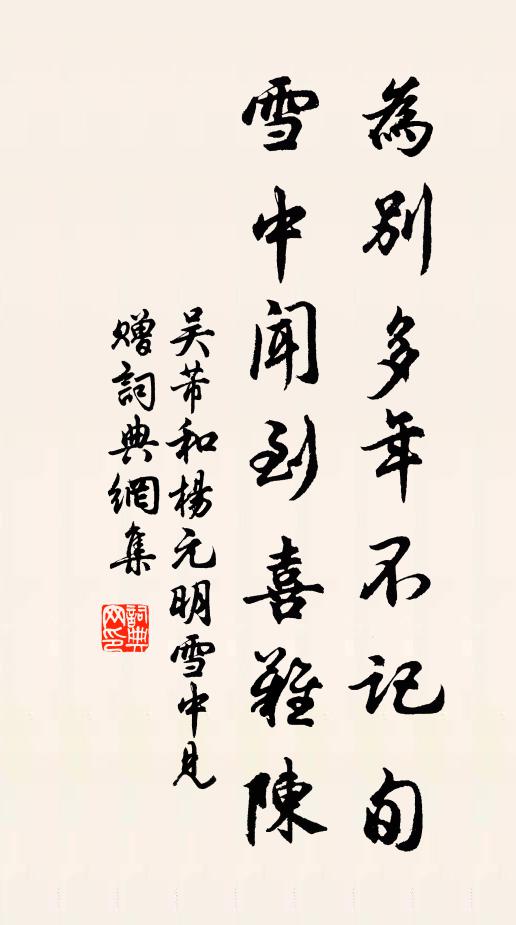 為別多年不記旬
雪中聞到喜難陳
吳芾和楊元明雪中見
贈詞典網集
詞典網印